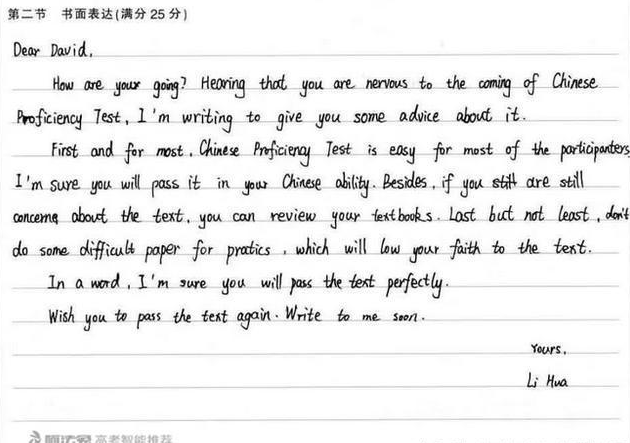 第二节 书面表达(满分 25 分)
Dear David,
How are your going? Hearing that you are nervous to the coming of Chinese
Proficiency Test, I'm writing to give you some advice about it.
First and for most, Chinese Proficiency Test is easy for most of the participanters,
I'm sure you will pass it in your Chinese ability. Besides, if you still are still
concerne about the text, you can review your textbooks. Last but not least, don't
do some difficult paper for pratics, which will low your faith to the text.
In a word, I'm sure you will pass the text perfectly.
Wish you to pass the text again. Write to me soon.
Yours,
Li Hua
高考智能推荐